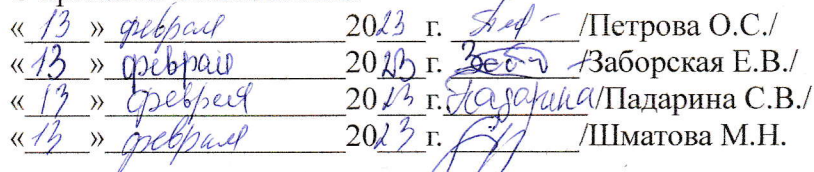 « 13 » февраля 2023 г. /Петрова О.С./
« 13 » февраля 2023 г. /Заборская Е.В./
« 13 » февраля 2023 г. Падарина /Падарина С.В./
« 13 » февраля 2023 г. /Шматова М.Н.